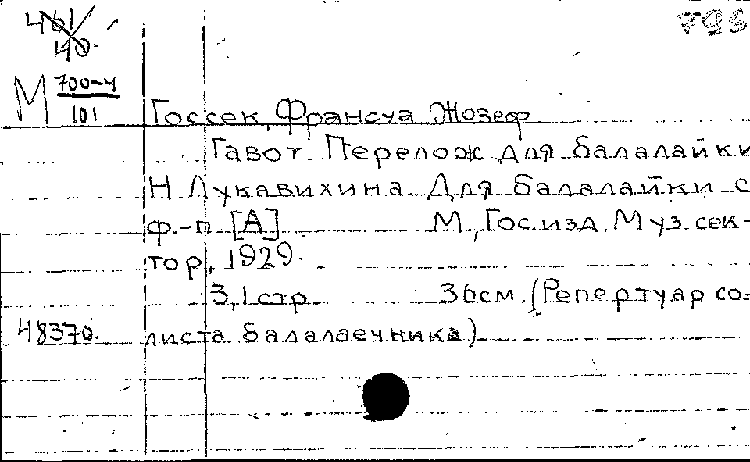 461/40.
795
М 700-4/101
Госсек, Франсуа Жозеф
Гавот. Перелож. для балалайки
Н Лукавихина Для балалайки с
ф.-п. [А] М, Гос.изд. Муз. сек-
тор, 1929.
3,1 стр. 36см. (Репертуар со-
48370. листа балалаечника)